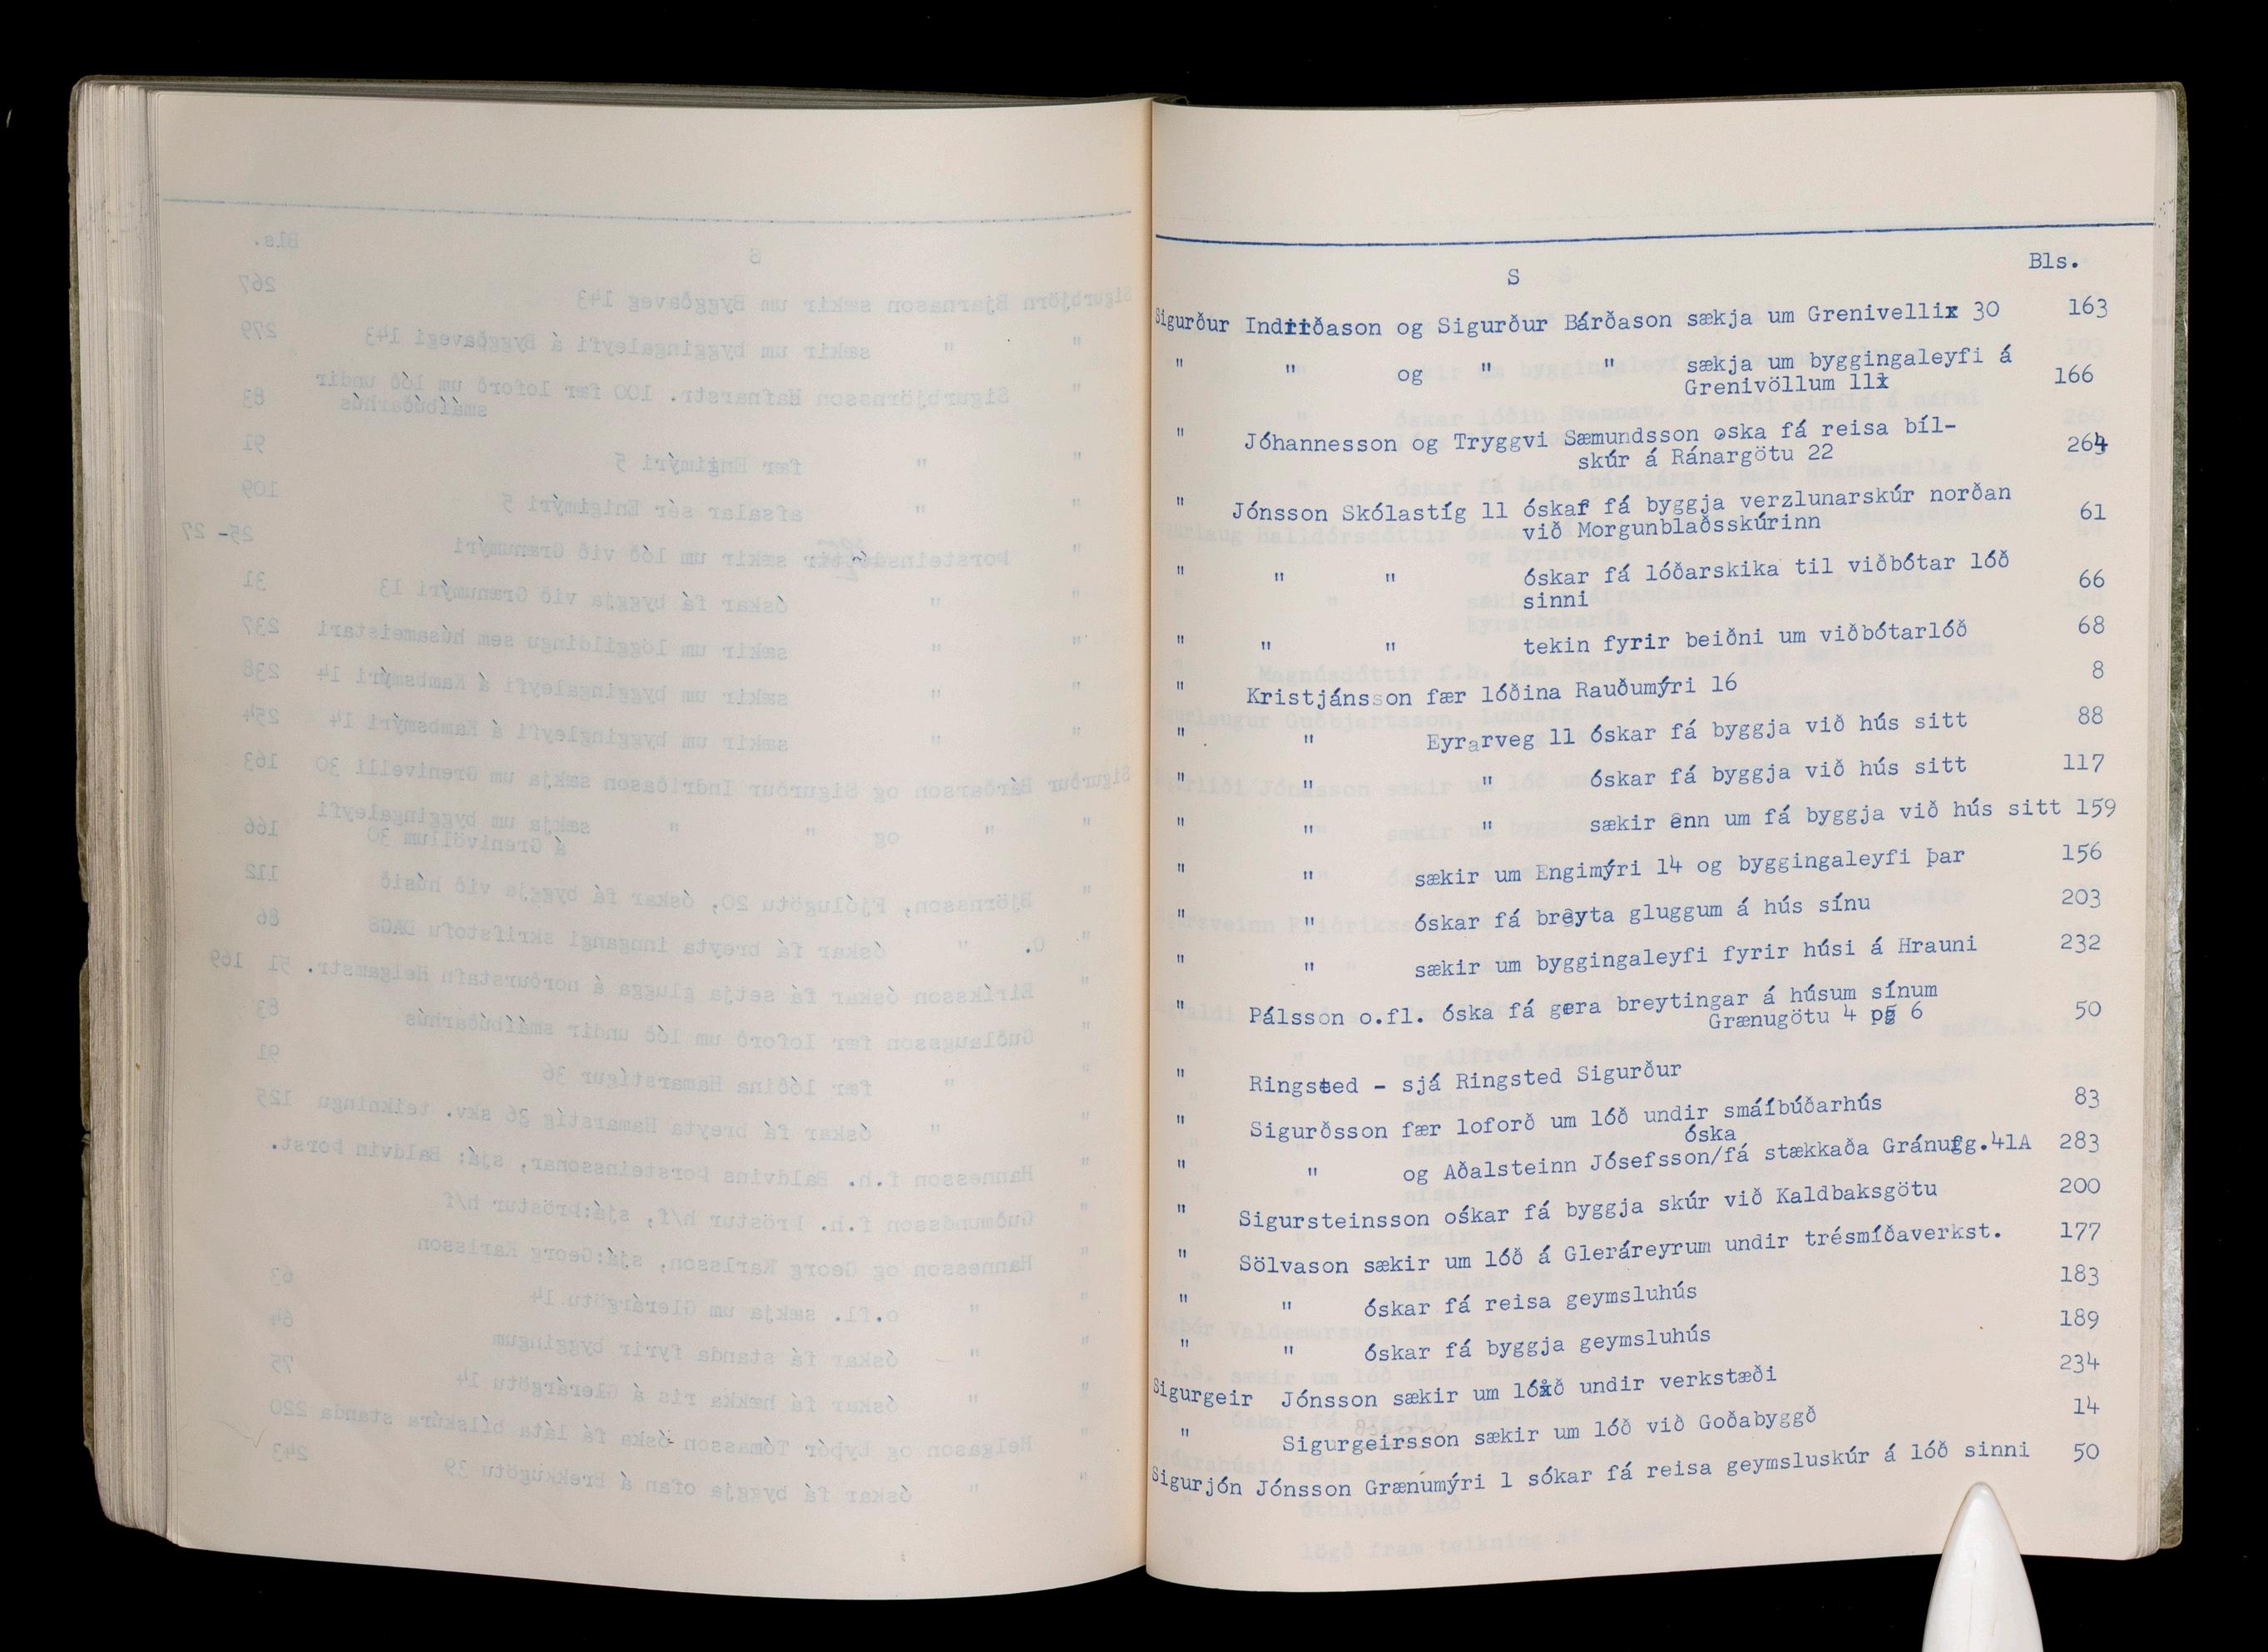 S Bls.
Sigurður Indriðason og Sigurður Bárðason sækja um Grenivelli 30 163
" " og " " sækja um byggingaleyfi á
Grenivöllum 11 166
" Jóhannesson og Tryggvi Sæmundsson oska fá reisa bíl-
skúr á Ránargötu 22 264
" Jónsson Skólastíg 11 óskar fá byggja verzlunarskúr norðan
við Morgunblaðsskúrinn 61
" " " óskar fá lóðarskika til viðbótar lóð
sinni 66
" " " tekin fyrir beiðni um viðbótarlóð 68
" Kristjánsson fær lóðina Rauðumýri 16 8
" " Eyrarveg 11 óskar fá byggja við hús sitt 88
" " " óskar fá byggja við hús sitt 117
" " " sækir enn um fá byggja við hús sitt 159
" " sækir um Engimýri 14 og byggingaleyfi þar 156
" " óskar fá breyta gluggum á hús sínu 203
" " sækir um byggingaleyfi fyrir húsi á Hrauni 232
" Pálsson o.fl. óska fá gera breytingar á húsum sínum
Grænugötu 4 og 6 50
" Ringsted - sjá Ringsted Sigurður
" Sigurðsson fær loforð um lóð undir smáíbúðarhús 83
óska
" " og Aðalsteinn Jósefsson/fá stækkaða Gránufg.41A 283
" Sigursteinsson oskar fá byggja skúr við Kaldbaksgötu 200
" Sölvason sækir um lóð á Gleráreyrum undir trésmíðaverkst. 177
" " óskar fá reisa geymsluhús 183
" " óskar fá byggja geymsluhús 189
Sigurgeir Jónsson sækir um lóð undir verkstæði 234
" Sigurgeirsson sækir um lóð við Goðabyggð 14
Sigurjón Jónsson Grænumýri 1 sókar fá reisa geymsluskúr á lóð sinni 50